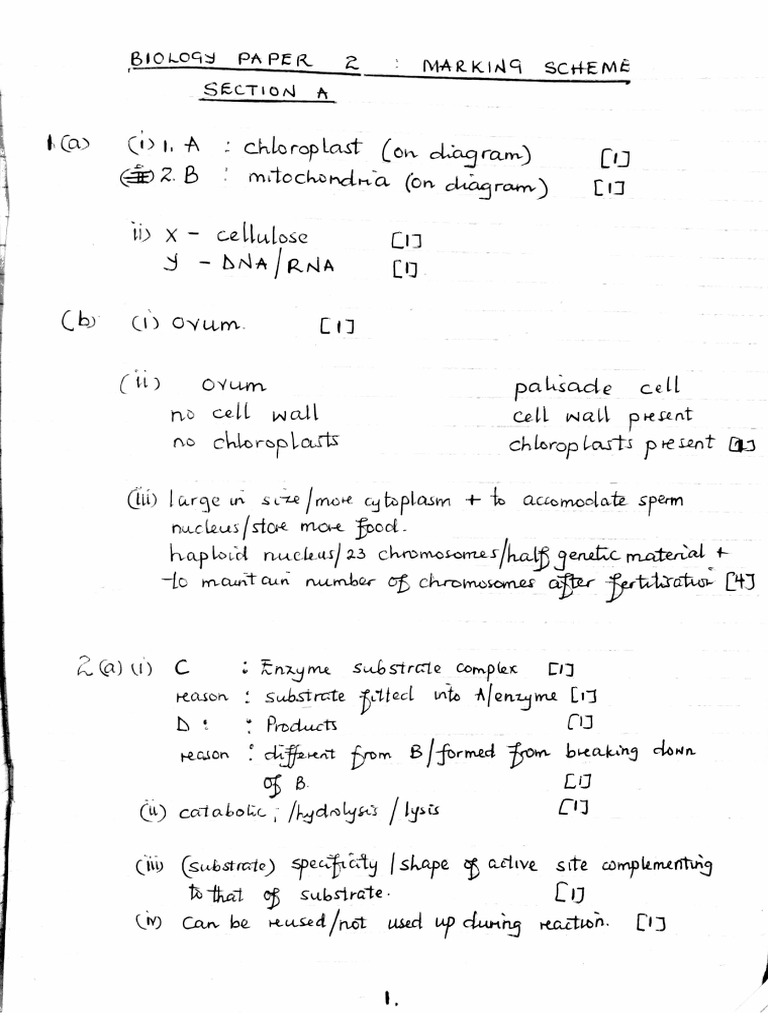 BIOLOGY PAPER 2 : MARKING SCHEME
SECTION A
1.(a) (i) 1. A : chloroplast (on diagram) [1]
2. B : mitochondria (on diagram) [1]
ii) X - cellulose [1]
Y - DNA/RNA [1]
(b) (i) Ovum. [1]
(ii) ovum palisade cell
no cell wall cell wall present
no chloroplasts chloroplasts present
(iii) large in size/more cytoplasm + to accomodate sperm
nucleus/store more food.
haploid nucleus/23 chromosomes/half genetic material +
to maintain number of chromosomes after fertilisation [4]
2(a)(i) C : Enzyme substrate complex [1]
reason : substrate fitted into A/enzyme [1]
D : : Products [1]
reason : different from B/formed from breaking down
of B. [1]
(ii) catabolic ; /hydrolysis / lysis [1]
(iii) (substrate) specificity / shape of active site complementing
to that of substrate. [1]
(iv) Can be reused/not used up during reaction. [1]
1.